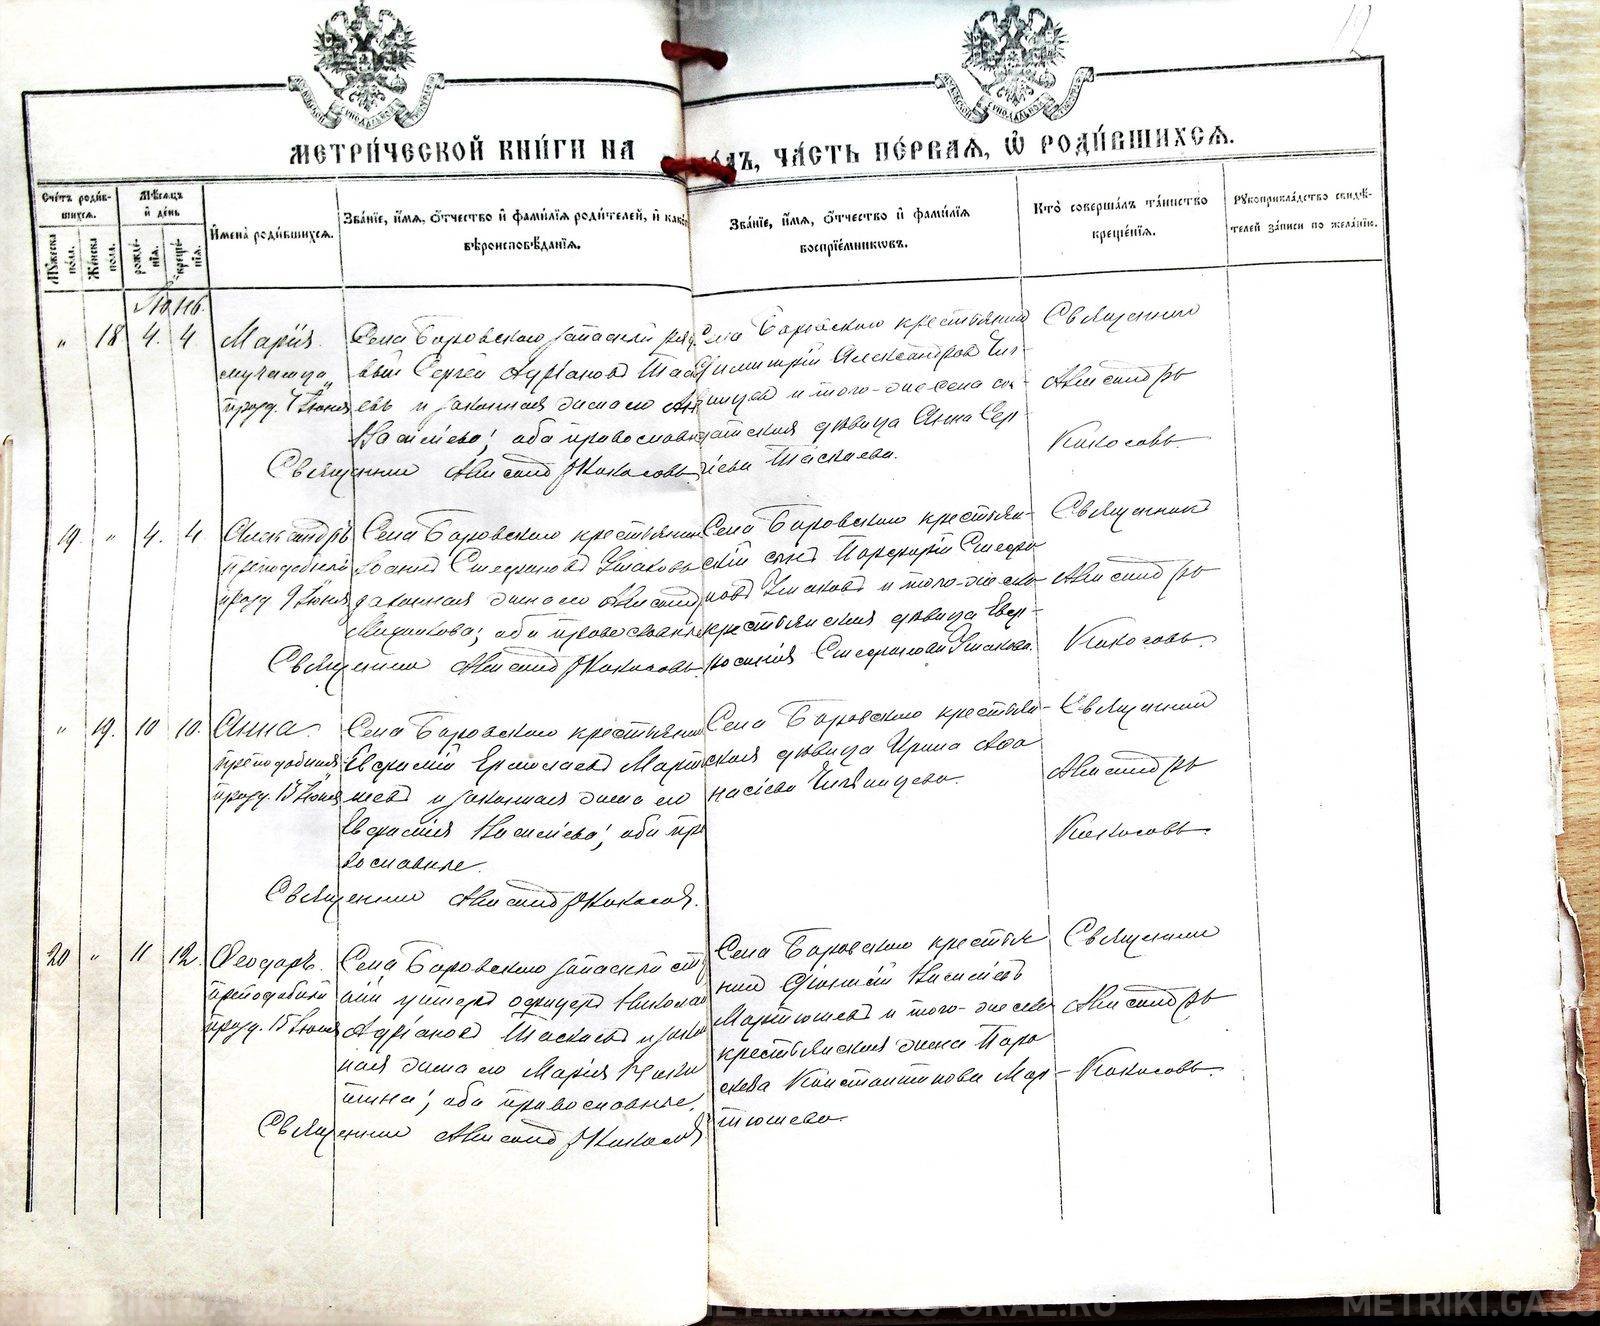 МЕТРИ́ЧЕСКОЙ КНИ́ГИ НА
го́дъ, ЧА́СТЬ ПЕ́РВАЯ, Ѡ РОДИ́ВШИХСЯ.
Сче́тъ роди́в-
шихся.
Мѣ́сяцъ
и де́нь
Му́жеска по́ла.
Же́нска по́ла.
рожде́-
нїя.
креще́-
нїя.
И́мена роди́вшихся.
Зва́нїе, и́мя, о́тчество и фами́лїя роди́телей, и како́го
вѣроисповѣ́данїя.
Зва́нїе, и́мя, о́тчество и фами́лїя
воспрїе́мниковъ.
Кто̀ соверша́лъ та́инство
креще́нїя.
Рукоприкла́дство свидѣ́-
телей за́писи по жела́нїю.
Іюнь.
" 18 4. 4.
Марія
мученица
празд. 7 Іюня
Села Боровского запасный рядо
вый Сергій Адріановъ Таска
евъ и законная жена его
Васильева; оба православн
Священник Александръ Кокосовъ.
Села Боровского крестьянин
Димитрій Александров
и того-же села сол-
датская дѣвица Анна Сер-
гіева Таскаева.
Священник
Александръ
Кокосовъ
19. " 4. 4
Александръ
преподобный
празд. 9 Іюня
Села Боровского крестьянин
Іоаннъ Стефановъ Ушаковъ
законная жена его Александр
оба православные
Священник Александръ Кокосовъ.
Села Боровского крестьян-
скій сынъ Порфирій Стефа
новъ Ушаковъ и того-же села
крестьянская дѣвица Евф-
росинія Стефанова Ушакова.
Священник
Александръ
Кокосовъ.
" 19. 10 10.
Анна
преподобная
празд. 13 Іюня
Села Боровского крестьянин
Евфимій Ермолаевъ Мартю
шевъ и законная жена его
Евфимія Васильева; оба пра
вославные.
Священник Александръ Кокосов.
Села Боровского крестьян-
ская дѣвица Ирина Афа
насіева
Священник
Александръ
Кокосовъ.
20 " 11 12.
Ѳеодоръ
преподобный
празд. 15 Іюня
Села Боровского запасный ст
унтеръ офицеръ Николай
Адріановъ Таскаевъ и закон
ная жена его Марія
оба православные.
Священник Александръ Кокосов
Села Боровского крестья
нин Діонисій Васильевъ
Мартюшевъ и того-же села
крестьянская жена Пара
скева Константинова Мар-
тюшева.
Священник
Александръ
Кокосовъ.
METRIKI.GASO-URAL.RU
METRIKI.GASO